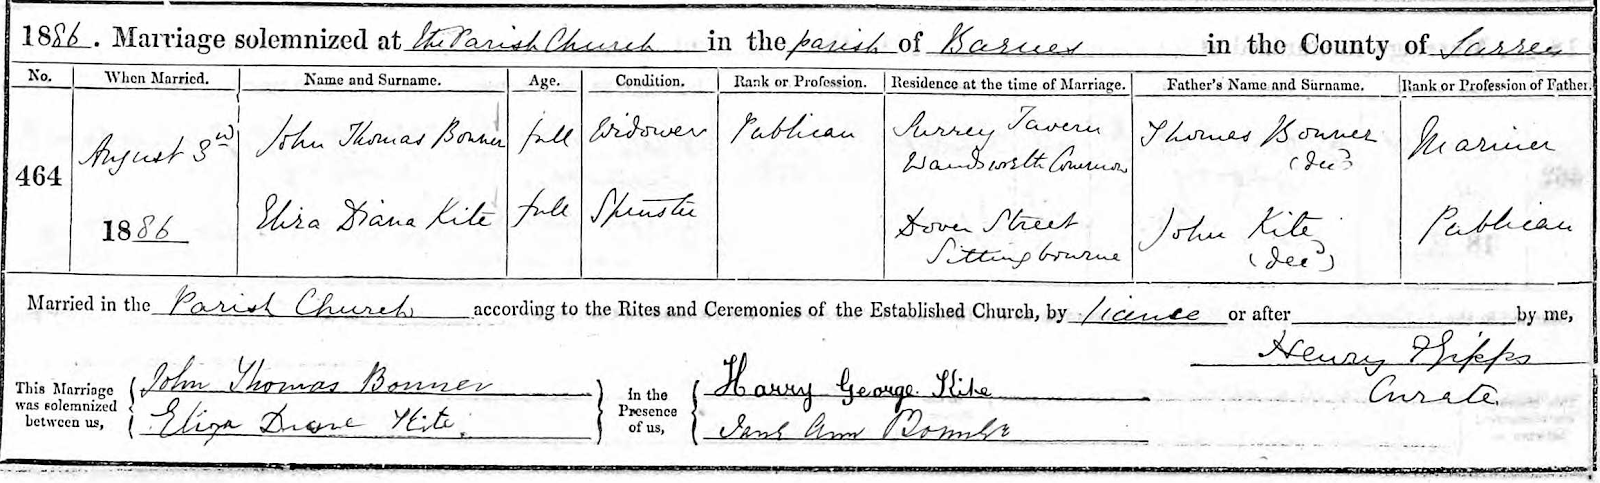 1886. Marriage solemnized at the Parish Church in the parish of Barnes in the County of Surrey
No. When Married. Name and Surname. Age. Condition. Rank or Profession. Residence at the time of Marriage. Father's Name and Surname. Rank or Profession of Father.
464
August 3rd
1886
John Thomas Bonner full Widower Publican Surrey Tavern Thomas Bonner Mariner
Wandsworth Common (decd)
Eliza Diana Kite full Spinster Dover Street John Kite Publican
Sittingbourne (decd)
Married in the Parish Church according to the Rites and Ceremonies of the Established Church, by licence or after by me,
Henry Gipps
Curate.
This Marriage was solemnized between us,
John Thomas Bonner
Eliza Diana Kite.
In the Presence of us,
Harry George Kite
Jane Ann Bonner